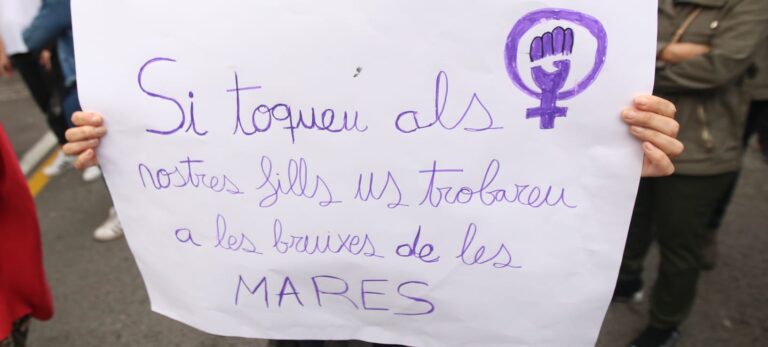 Si toqueu als
nostres fills us trobareu
a les bruixes de les
MARES